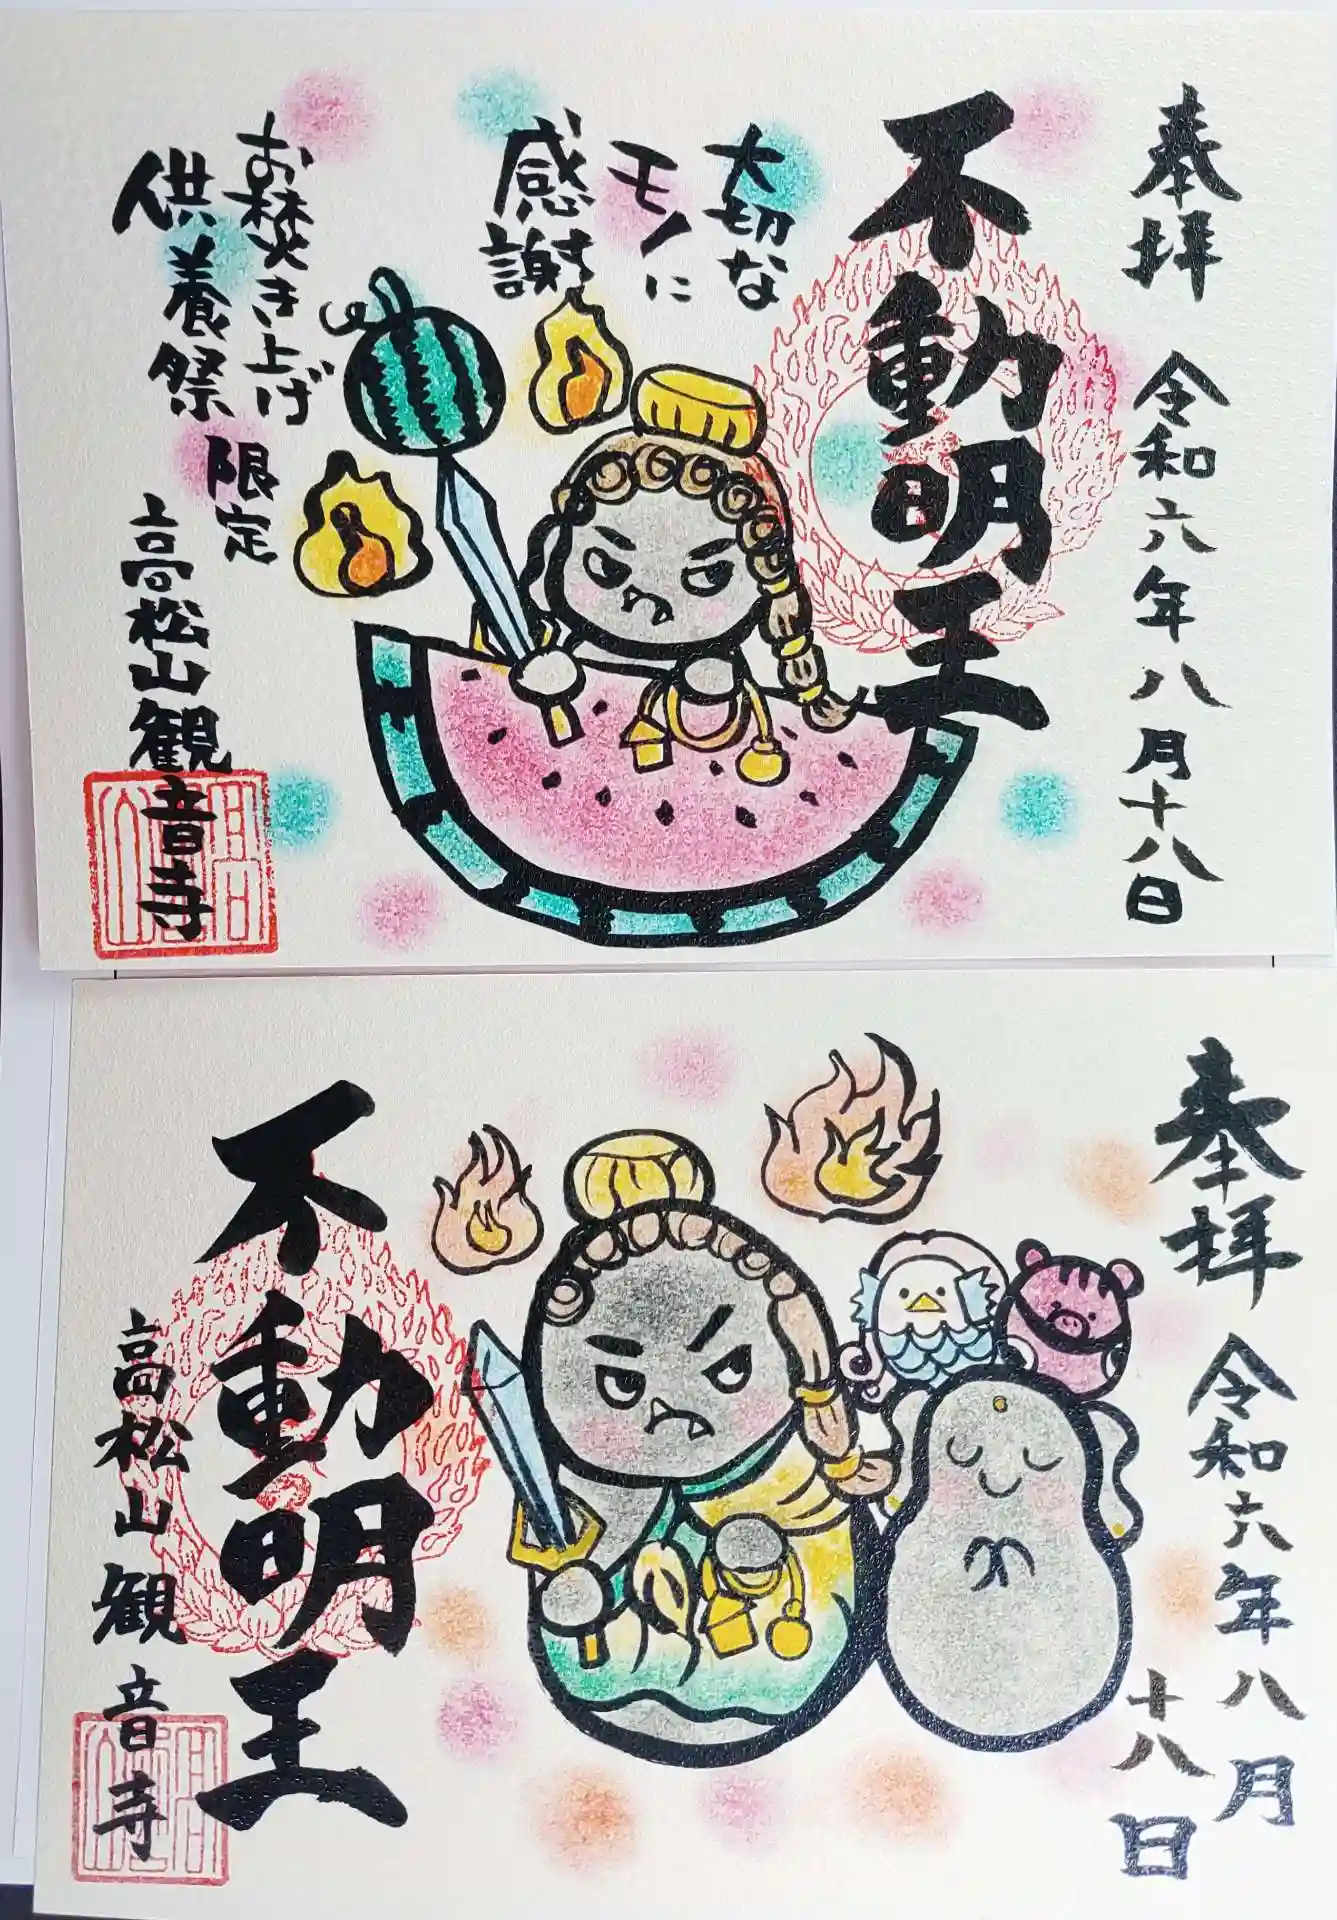 奉拝 令和六年八月十八日
不動明王
大切な
モノに
感謝
お焚き上げ
供養祭
限定
高松山観音寺
奉拝 令和六年八月
十八日
不動明王
高松山観音寺